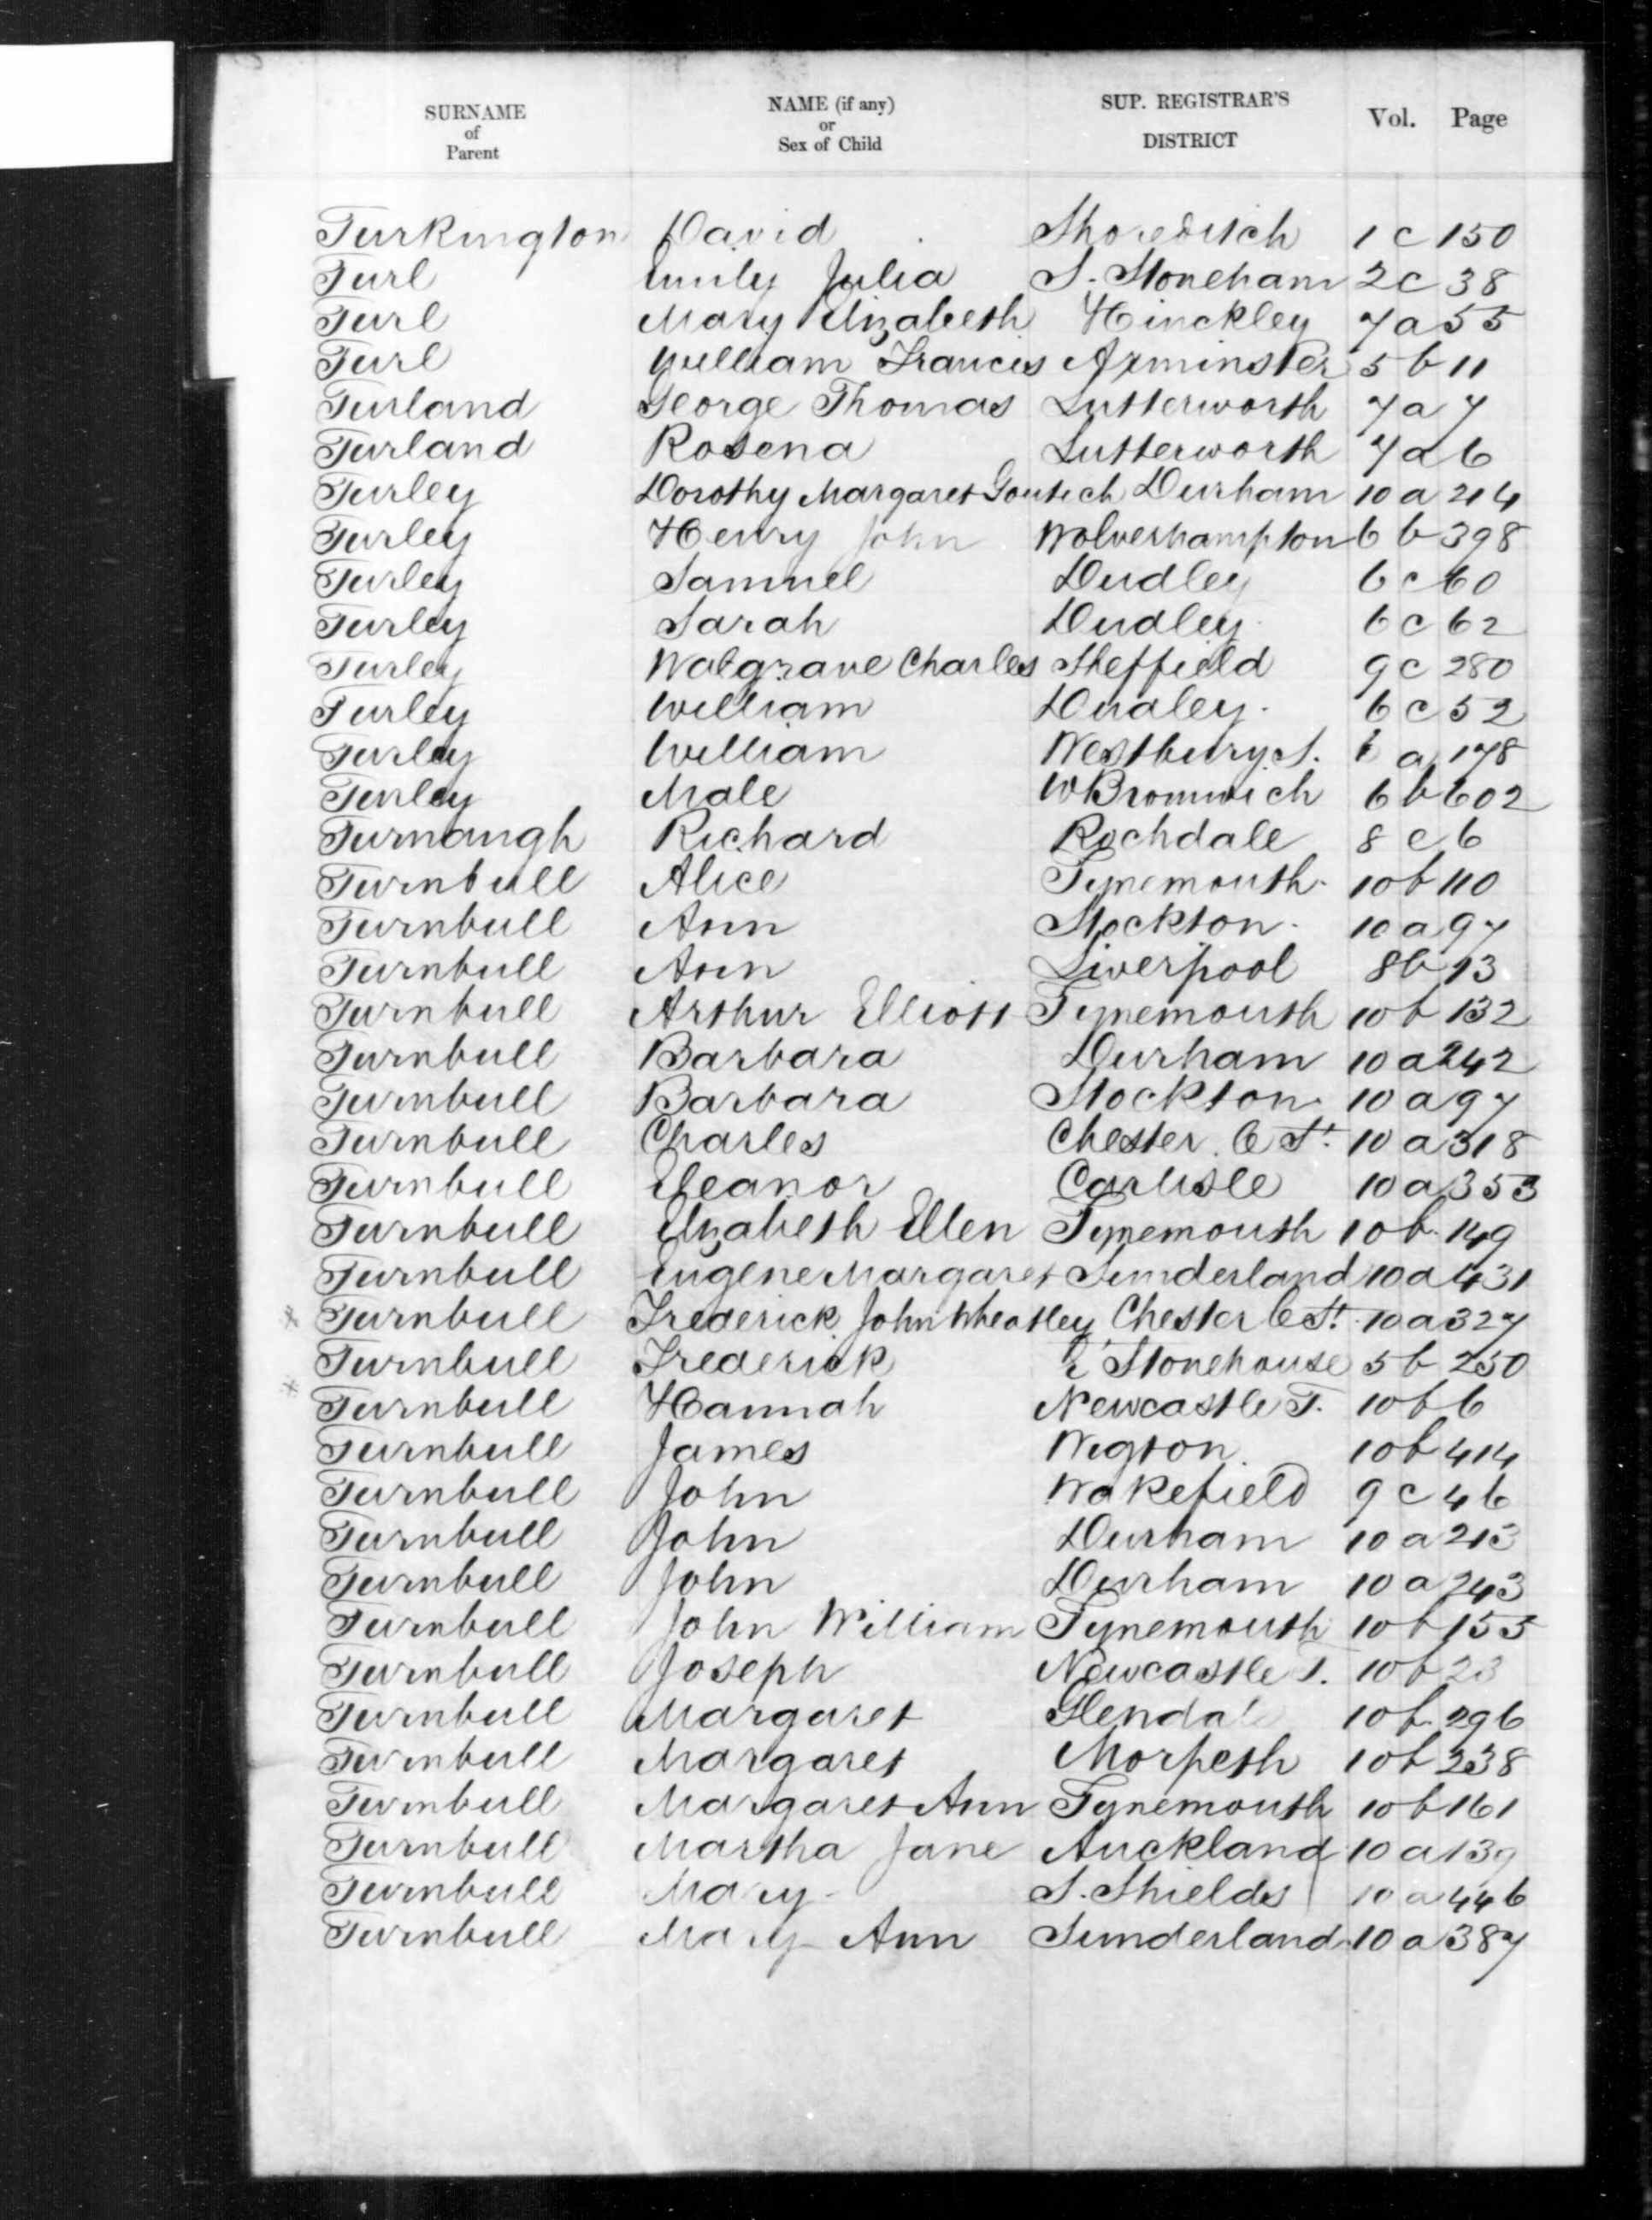 SURNAME of Parent NAME (if any) or Sex of Child SUP. REGISTRAR'S DISTRICT Vol. Page
Turkington David Shoreditch 1 c 150
Turl Emily Julia S. Stoneham 2 c 38
Turl Mary Elizabeth Hinckley 7 a 55
Turl William Francis Axminster 5 b 11
Turland George Thomas Lutterworth 7 a 7
Turland Rosena Lutterworth 7 a 6
Turley Dorothy Margaret Durham 10 a 214
Turley Henry John Wolverhampton 6 b 398
Turley Samuel Dudley 6 c 60
Turley Sarah Dudley 6 c 62
Turley Walgrave Charles Sheffield 9 c 280
Turley William Dudley 6 c 52
Turley William Westbury S. a 178
Turley Male W Bromwich 6 b 602
Turnaugh Richard Rochdale 8 e 6
Turnbull Alice Tynemouth 10 b 110
Turnbull Ann Stockton 10 a 97
Turnbull Ann Liverpool 8 b 13
Turnbull Arthur Elliott Tynemouth 10 b 132
Turnbull Barbara Durham 10 a 242
Turnbull Barbara Stockton 10 a 97
Turnbull Charles Chester le St. 10 a 318
Turnbull Eleanor Carlisle 10 a 353
Turnbull Elizabeth Ellen Tynemouth 10 b 149
Turnbull Eugene Margaret Sunderland 10 a 431
* Turnbull Frederick John Wheatley Chester le St. 10 a 327
Turnbull Frederick E Stonehouse 5 b 250
* Turnbull Hannah Newcastle T. 10 b 6
Turnbull James Wigton 10 b 414
Turnbull John Wakefield 9 c 46
Turnbull John Durham 10 a 213
Turnbull John Durham 10 a 243
Turnbull John William Tynemouth 10 b 155
Turnbull Joseph Newcastle T. 10 b 23
Turnbull Margaret Glendale 10 b 296
Turnbull Margaret Morpeth 10 b 238
Turnbull Margaret Ann Tynemouth 10 b 161
Turnbull Martha Jane Auckland 10 a 139
Turnbull Mary S. Shields 10 a 446
Turnbull Mary Ann Sunderland 10 a 387